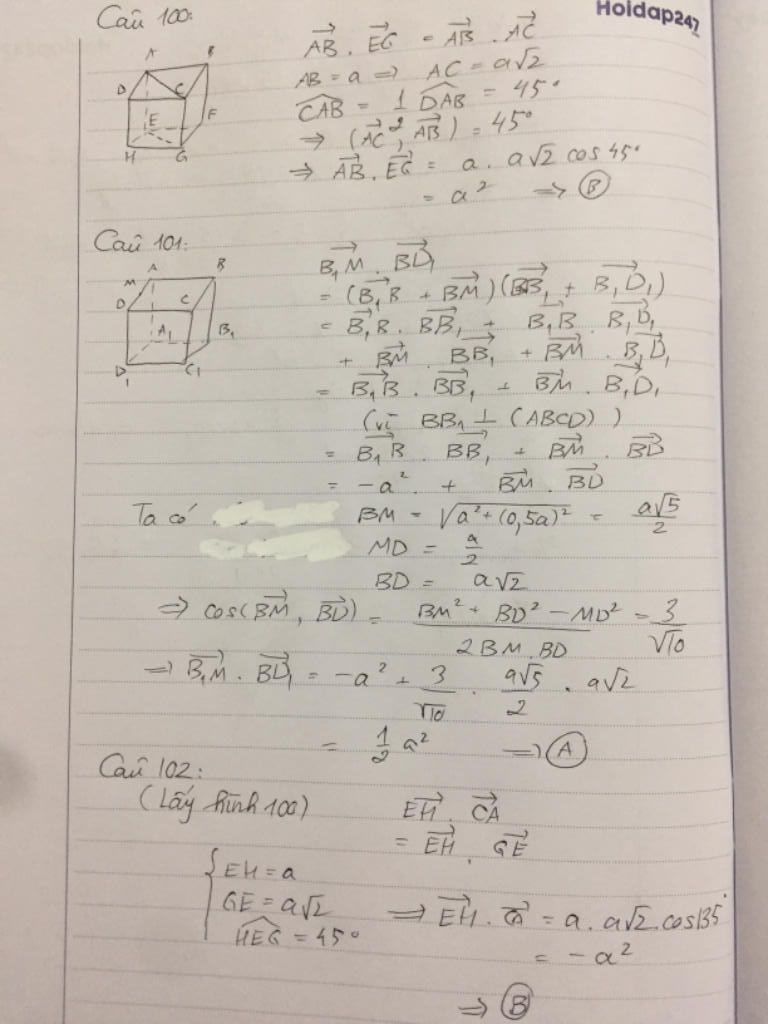 Hoidap247
Câu 100:
A B D C E F H G
\overrightarrow{AB} . \overrightarrow{EG} = \overrightarrow{AB} . \overrightarrow{AC}
AB = a => AC = a√2
\widehat{CAB} = \frac{1}{2} \widehat{DAB} = 45°
=> (\overrightarrow{AC}, \overrightarrow{AB}) = 45°
=> \overrightarrow{AB} . \overrightarrow{EG} = a . a√2 cos 45°
= a² => B
Câu 101:
A B M D C A₁ B₁ D₁ C₁
\overrightarrow{B₁M} . \overrightarrow{BD₁}
= (\overrightarrow{B₁B} + \overrightarrow{BM})(\overrightarrow{BB₁} + \overrightarrow{B₁D₁})
= \overrightarrow{B₁B} . \overrightarrow{BB₁} + \overrightarrow{B₁B} . \overrightarrow{B₁D₁}
+ \overrightarrow{BM} . \overrightarrow{BB₁} + \overrightarrow{BM} . \overrightarrow{B₁D₁}
= \overrightarrow{B₁B} . \overrightarrow{BB₁} + \overrightarrow{BM} . \overrightarrow{B₁D₁}
(vì BB₁ ⊥ (ABCD))
= \overrightarrow{B₁B} . \overrightarrow{BB₁} + \overrightarrow{BM} . \overrightarrow{BD}
= -a² + \overrightarrow{BM} . \overrightarrow{BD}
Ta có BM = \sqrt{a² + (0,5a)²} = \frac{a√5}{2}
MD = \frac{a}{2}
BD = a√2
=> cos(\overrightarrow{BM}, \overrightarrow{BD}) = \frac{BM² + BD² - MD²}{2BM.BD} = \frac{3}{√10}
=> \overrightarrow{B₁M} . \overrightarrow{BD₁} = -a² + \frac{3}{√10} . \frac{a√5}{2} . a√2
= \frac{1}{2} a² => A
Câu 102:
(Lấy hình 100)
\overrightarrow{EH} . \overrightarrow{CA}
= \overrightarrow{EH} . \overrightarrow{GE}
EH = a
GE = a√2
\widehat{HEG} = 45°
=> \overrightarrow{EH} . \overrightarrow{CA} = a . a√2 . cos 135°
= -a²
=> B